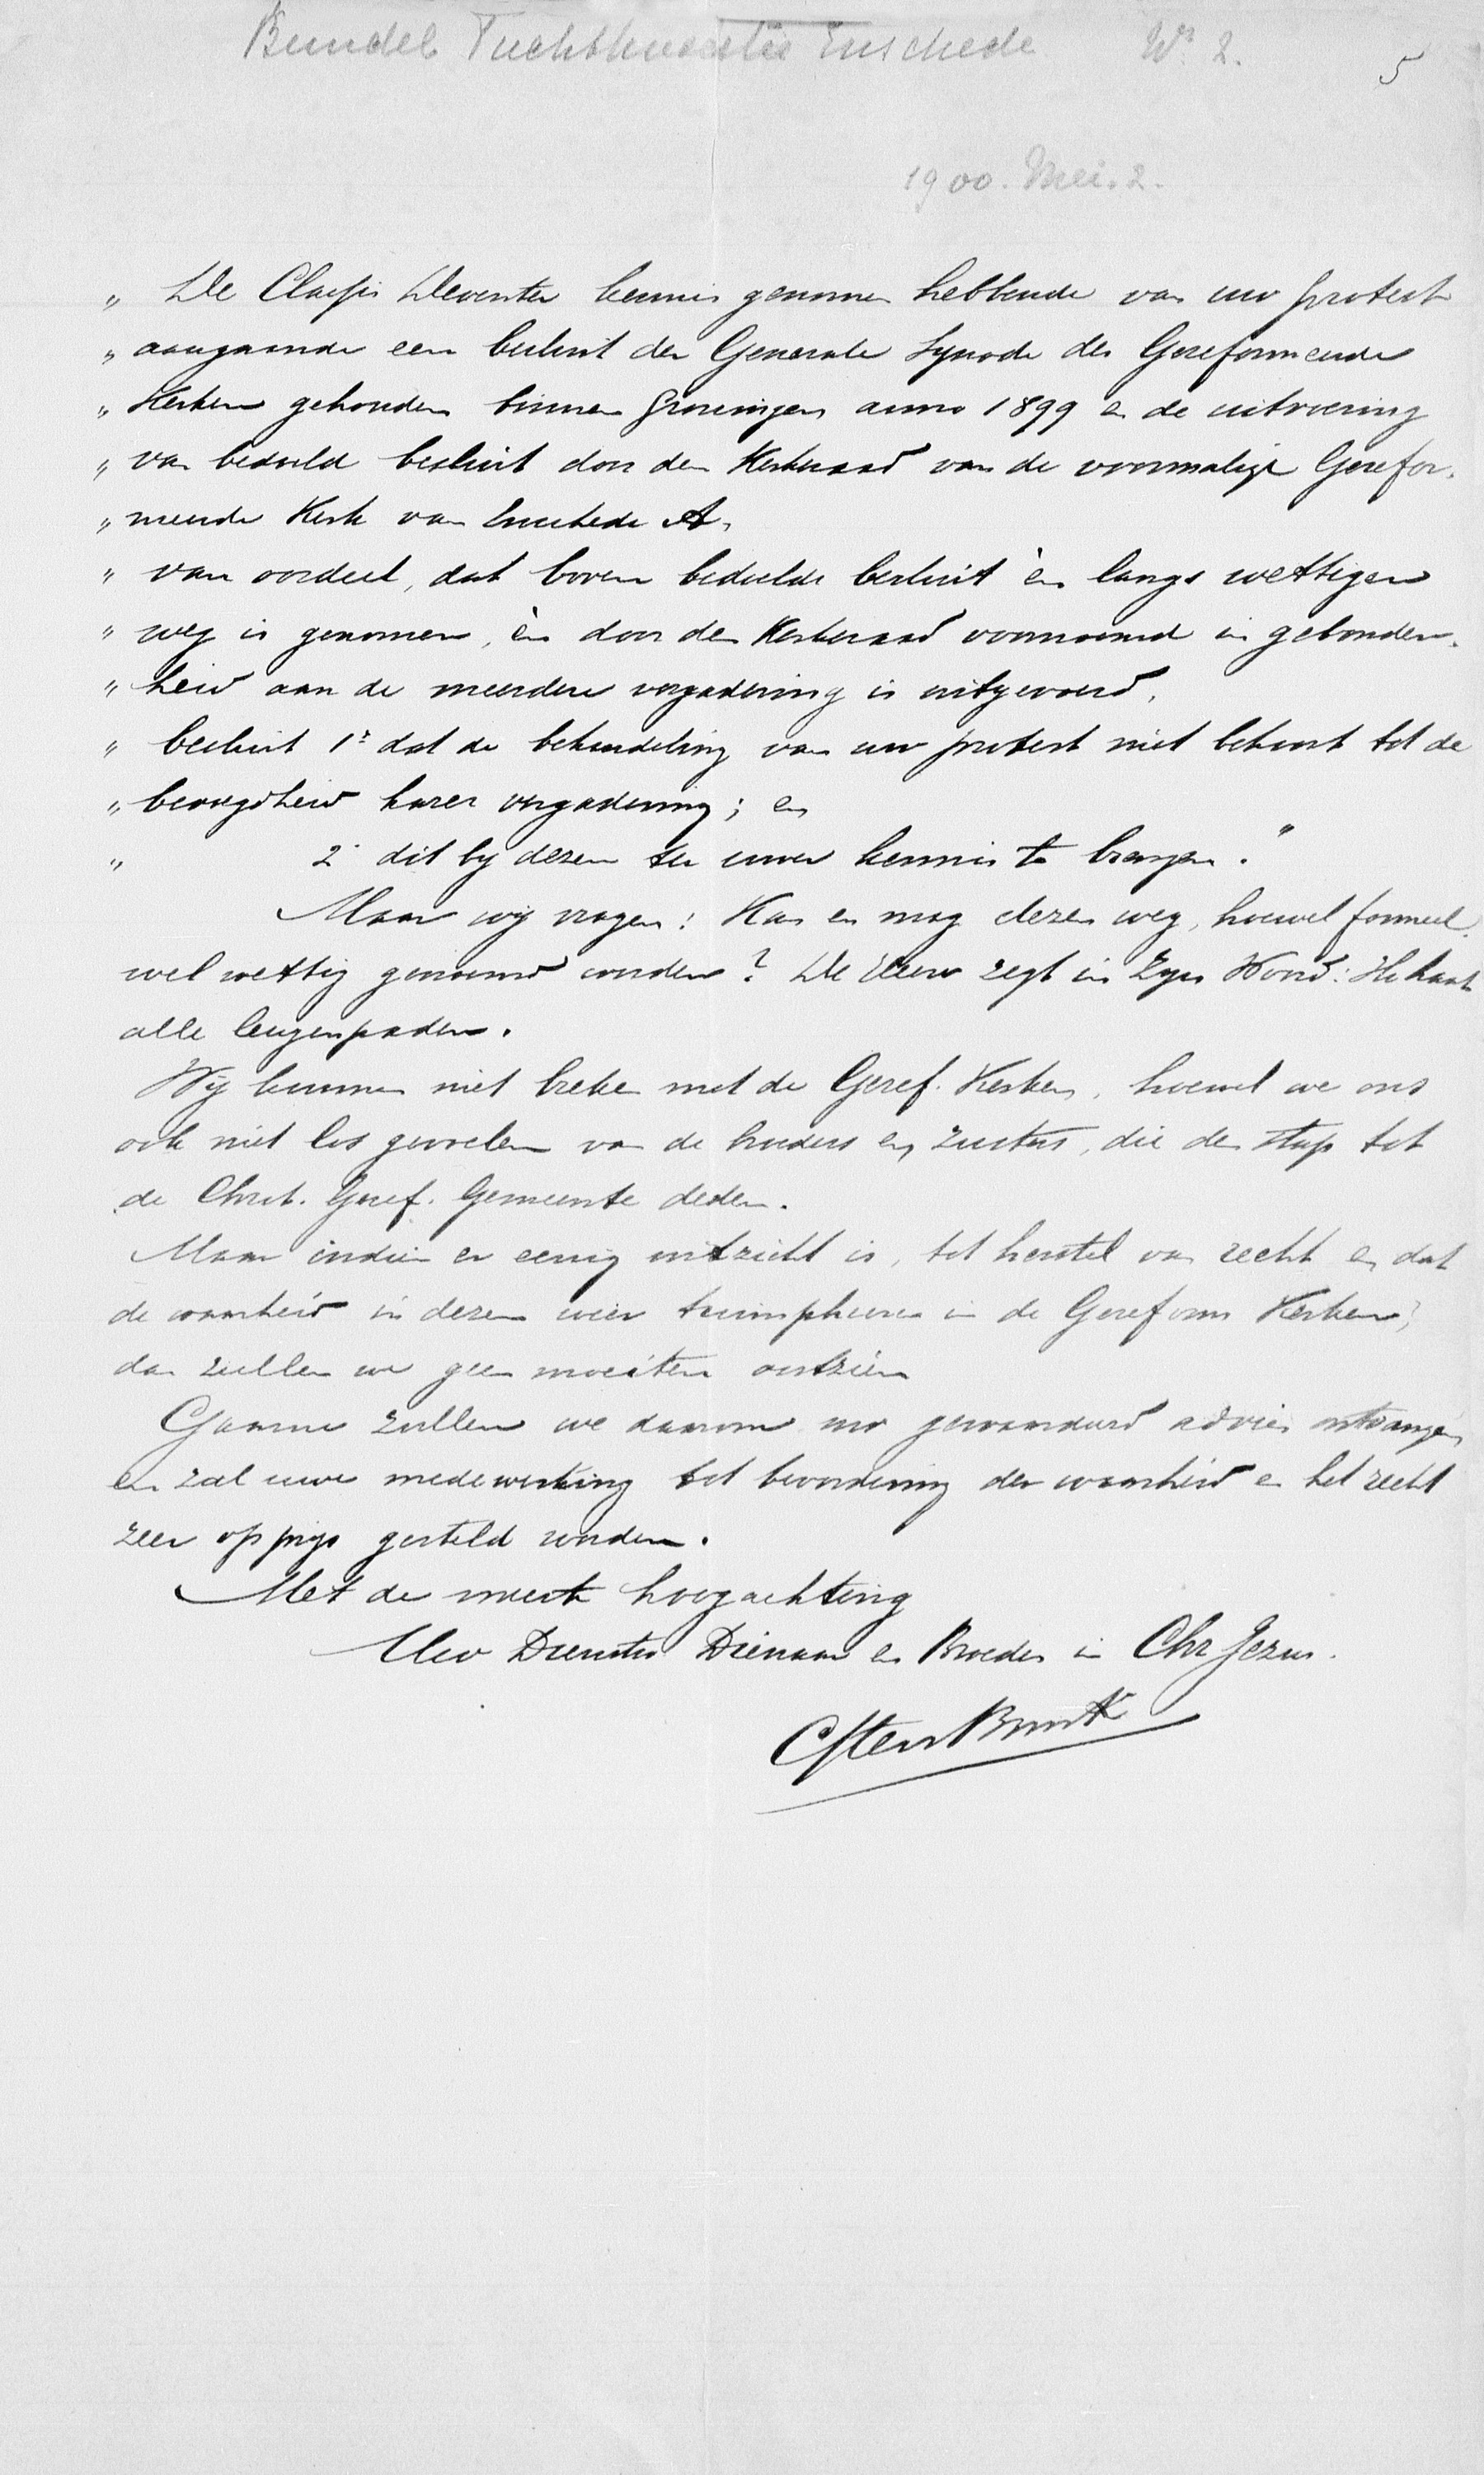 Bundel Tuchtkwestie Enschede No. 2. 5
1900. Mei. 2.
„ De Classis Deventer kennis genomen hebbende van uw protest
„ aangaande een besluit der Generale Synode der Gereformeerde
„ Kerken gehouden binnen Groningen anno 1899 en de uitvoering
„ van bedoeld besluit door den Kerkeraad van de voormalige Gerefor-
„ meerde Kerk van Enschede A,
„ van oordeel, dat boven bedoelde besluit èn langs wettigen
„ weg is genomen, èn door den Kerkeraad voornoemd in gebonden-
„ heid aan de meerdere vergadering is uitgevoerd,
„ besluit 1º dat de behandeling van uw protest niet behoort tot de
„ bevoegdheid harer vergadering; en
„ 2º dit bij dezen ter uwer kennis te brengen."
Maar wij vragen: Kan en mag dezen weg, hoewel formeel
wel wettig genoemd worden? De Heere zegt in Zijn Woord: Ik haat
alle leugenpaden.
Wij kunnen niet breken met de Geref. Kerken, hoewel we ons
ook niet los gevoelen van de broeders en zusters, die den stap tot
de Christ. Geref. Gemeente deden.
Maar indien er eenig uitzicht is, tot herstel van recht en dat
de waarheid in dezen weer triumpheere in de Gereform Kerken,
dan zullen we geen moeiten ontzien
Gaarne zullen we daarom uw gewaardeerd advies ontvangen
en zal uwe medewerking tot bevordering der waarheid en het recht
zeer op prijs gesteld worden.
Met de meeste hoogachting
Uw Dienstw Dienaar en Broeder in Chr Jezus.